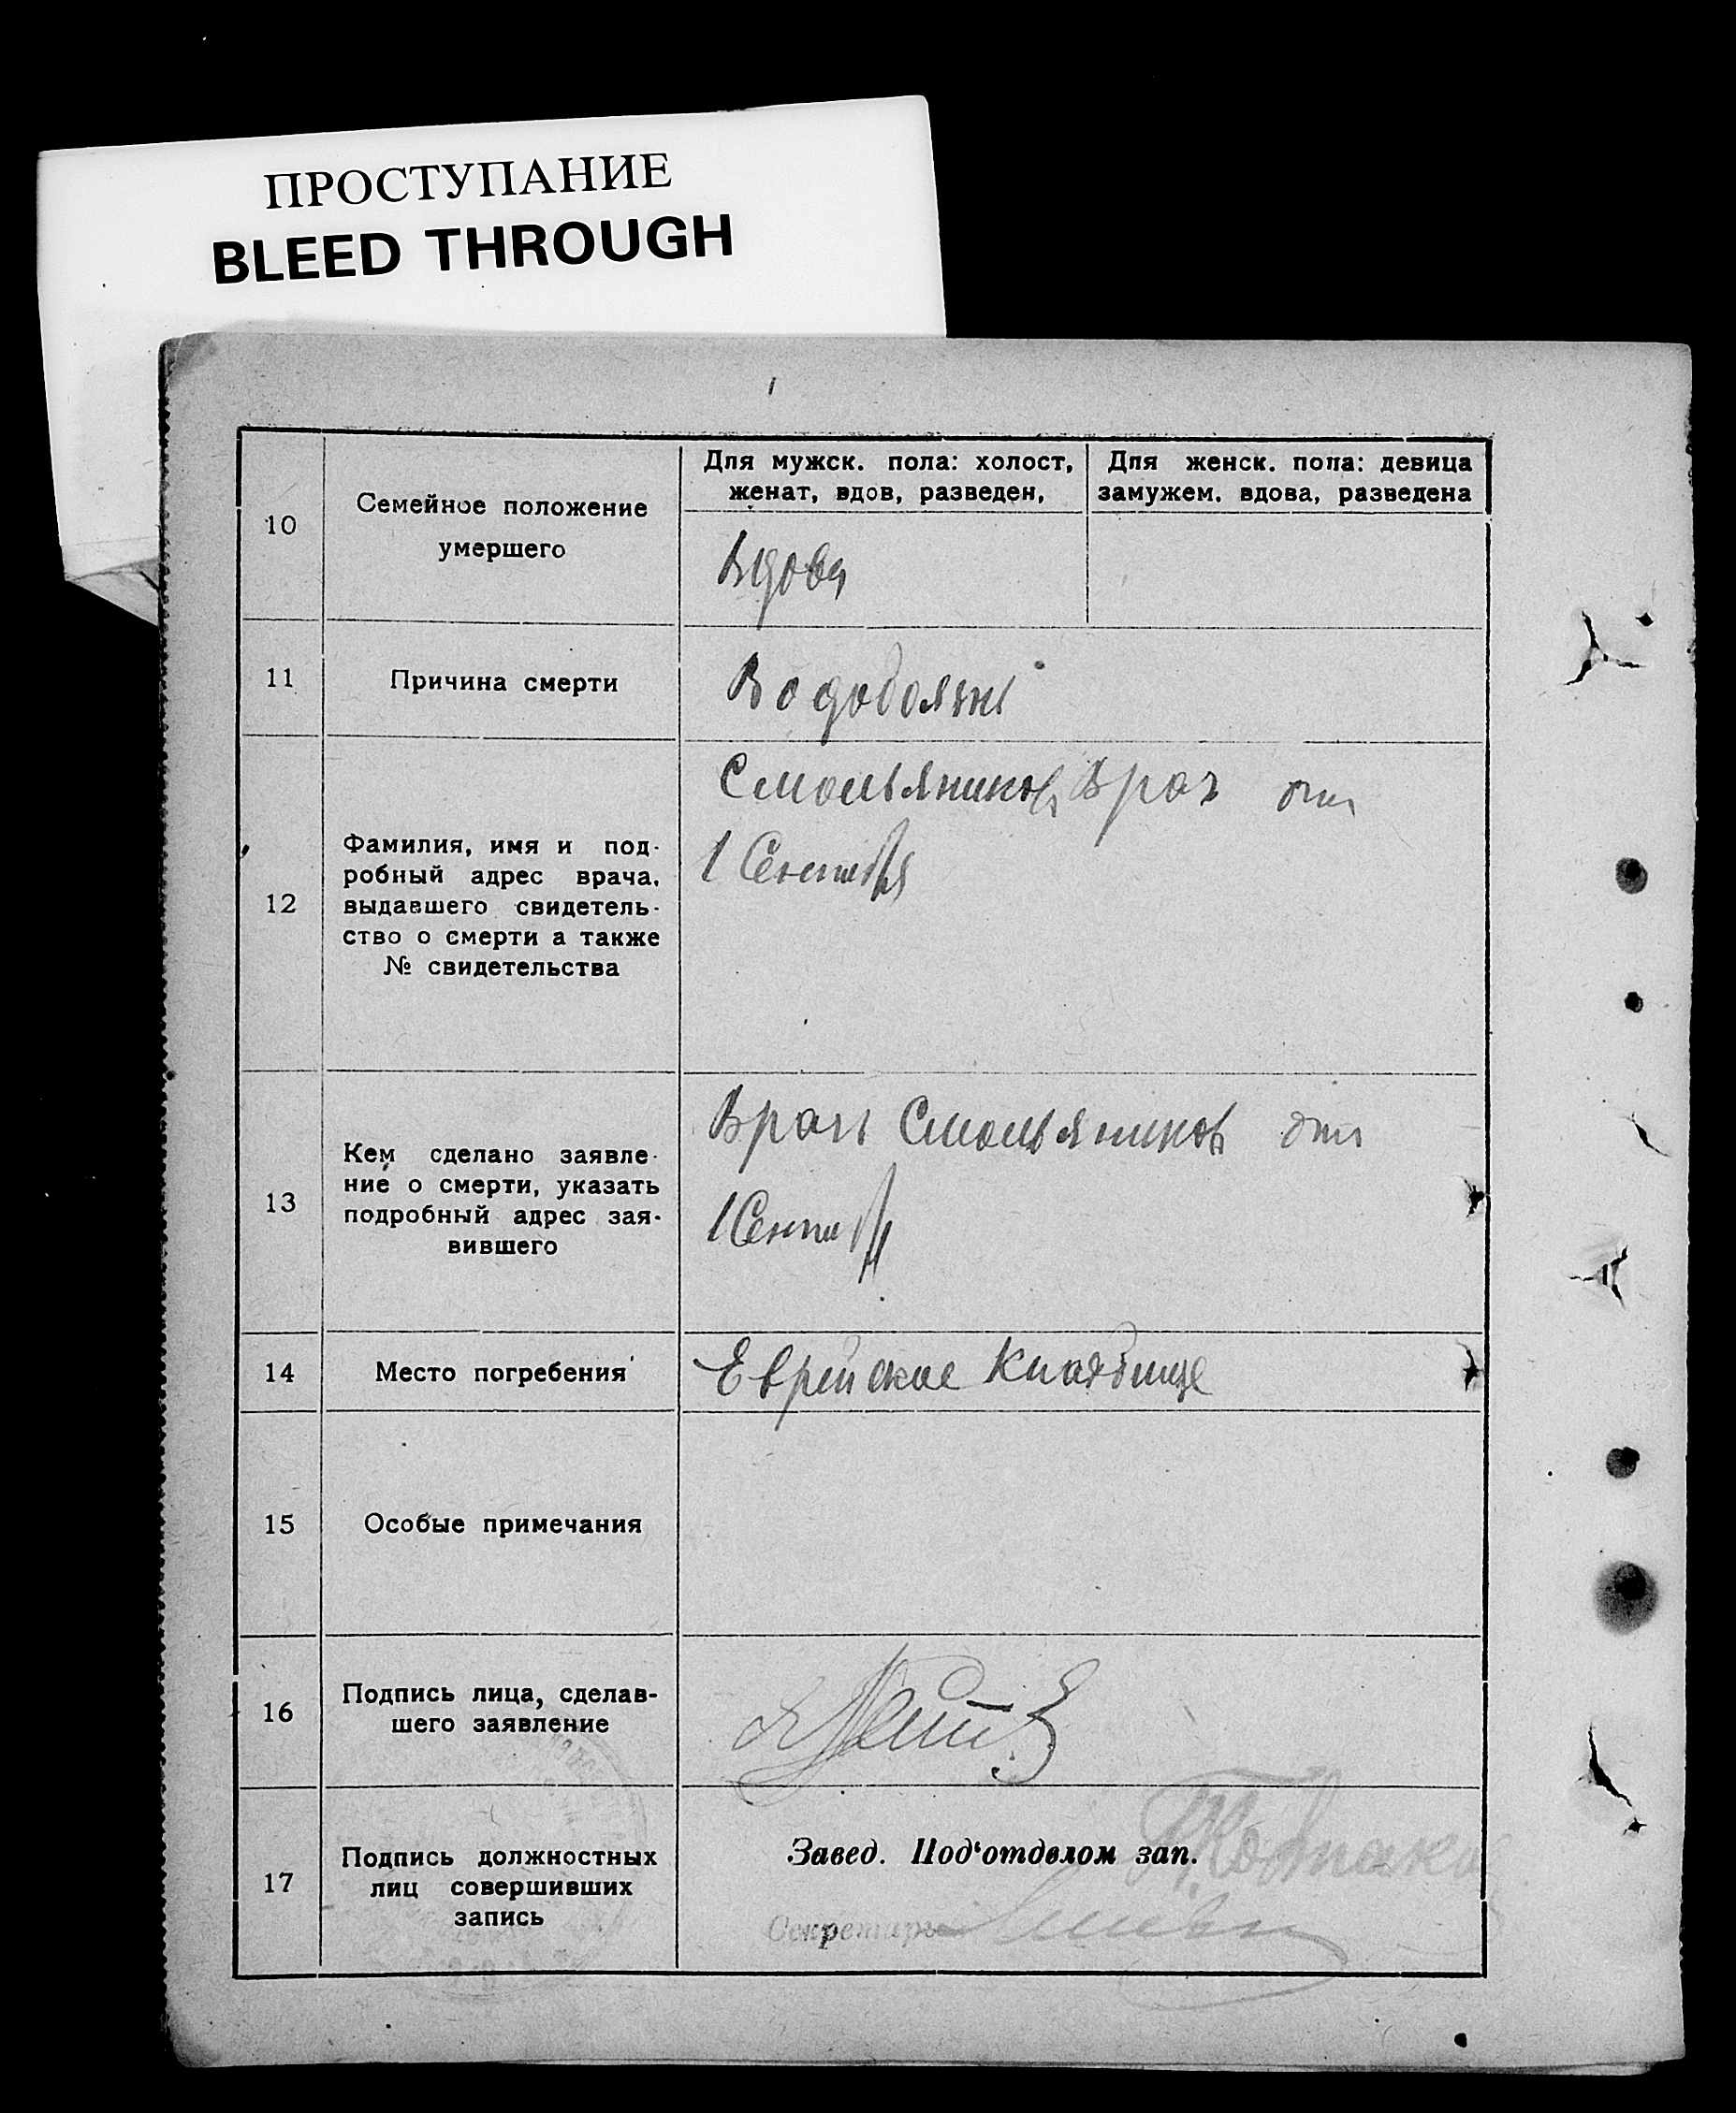 ПРОСТУПАНИЕ
BLEED THROUGH
10
Семейное положение
умершего
Для мужск. пола: холост,
женат, вдов, разведен,
Для женск. пола: девица
замужем. вдова, разведена
Вдова
11
Причина смерти
Водобоязнь
12
Фамилия, имя и под-
робный адрес врача,
выдавшего свидетель-
ство о смерти а также
№ свидетельства
Смольяников Врач от
1 Сентября
13
Кем сделано заявле-
ние о смерти, указать
подробный адрес зая-
вившего
Врач Смольяников от
1 Сентября
14
Место погребения
Еврейское Кладбище
15
Особые примечания
16
Подпись лица, сделав-
шего заявление
17
Подпись должностных
лиц совершивших
запись
Завед. Под'отделом зап.
Секретарь